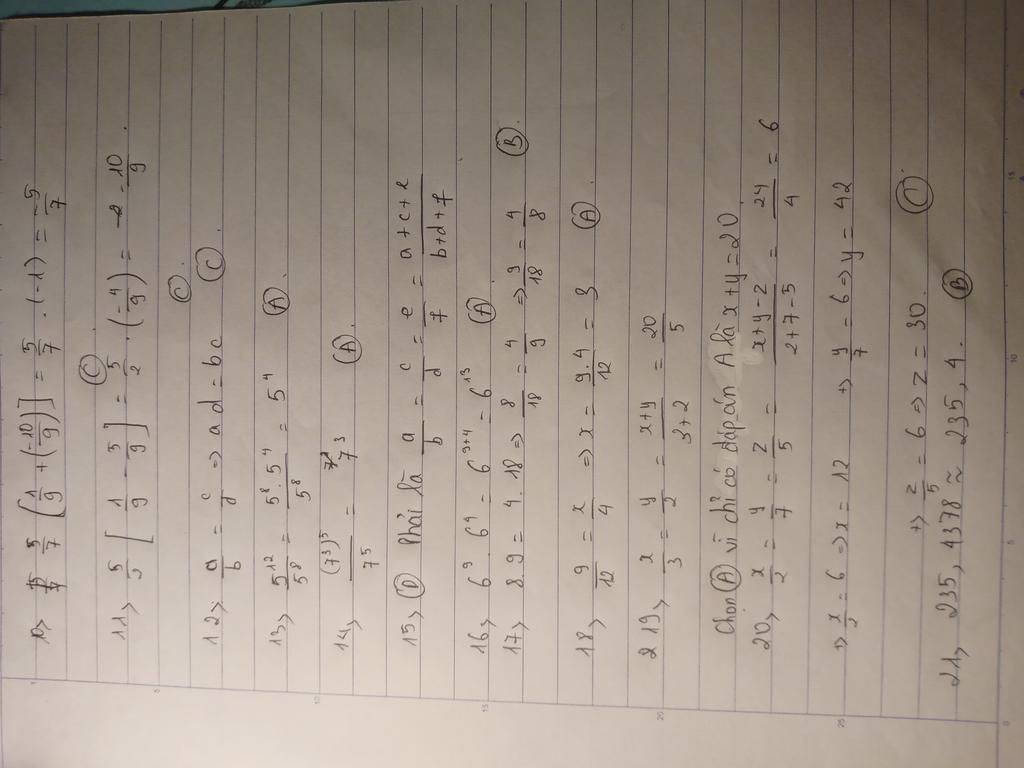 10> 5/7 [1/9 + (-10/9)] = 5/7 . (-1) = -5/7
Ⓒ
11> 5/5 [1/9 - 5/9] = 5/2 . (-4/9) = -10/9
Ⓒ
12> a/b = c/d => ad = bc Ⓒ
13> 5^12/5^8 = 5^8.5^4/5^8 = 5^4 Ⓐ
14> (7^3)^5/7^5 = 7^3 Ⓐ
15> Ⓓ Phải là a/b = c/d = e/f = a+c+e/b+d+f
16> 6^9 . 6^4 = 6^9+4 = 6^13 Ⓐ
17> 8.9 = 4.18 => 8/18 = 4/9 => 9/18 = 4/8 Ⓑ
18> 9/12 = x/4 => x = 9.4/12 = 3 Ⓐ.
19> x/3 = y/2 = x+y/3+2 = 20/5
Chọn Ⓐ vì chỉ có đáp án A là x+y=20.
20> x/2 = y/7 = z/5 = x+y-z/2+7-5 = 24/4 = 6
=> x/2 = 6 => x = 12 => y/7 = 6 => y = 42
=> z/5 = 6 => z = 30. Ⓒ
21> 235,4378 ≈ 235,4. Ⓑ